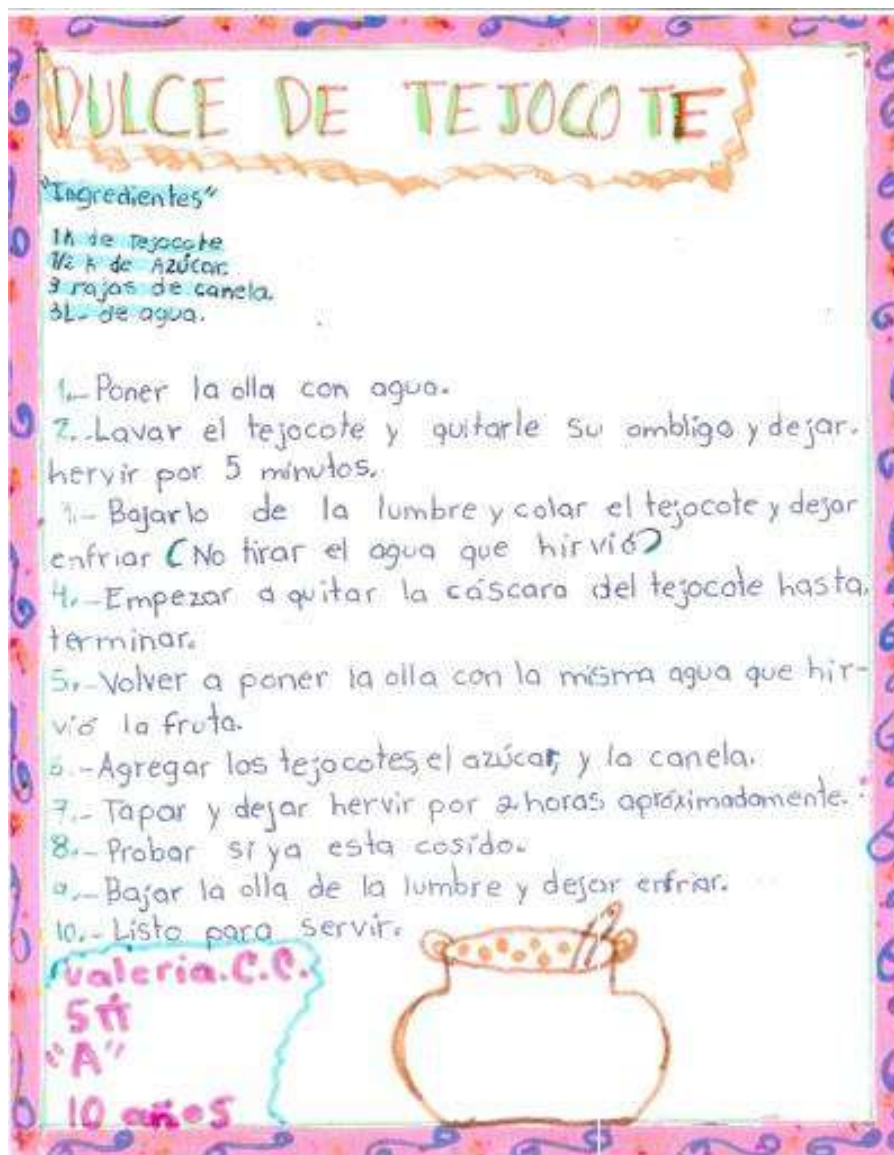 DULCE DE TEJOCOTE
"Ingredientes"
1k de Tejocote
1/2 k de AZÚCar.
3 rajas de canela.
3L.- de agua.
1.- Poner la olla con agua.
2.- Lavar el tejocote y quitarle su ombligo y dejar.
hervir por 5 minutos.
- Bajarlo de la lumbre y colar el tejocote y dejar
enfriar (No tirar el agua que hirvió)
4.- Empezar a quitar la cáscara del tejocote hasta.
terminar.
5.- Volver a poner la olla con la misma agua que hir-
vió la fruta.
6.- Agregar los tejocotes, el azúcar, y la canela.
7.- Tapar y dejar hervir por 2 horas apróximadamente.
8.- Probar si ya esta cosido.
9.- Bajar la olla de la lumbre y dejar enfriar.
10.- Listo para servir.
Valeria.C.C.
5
"A"
10 años